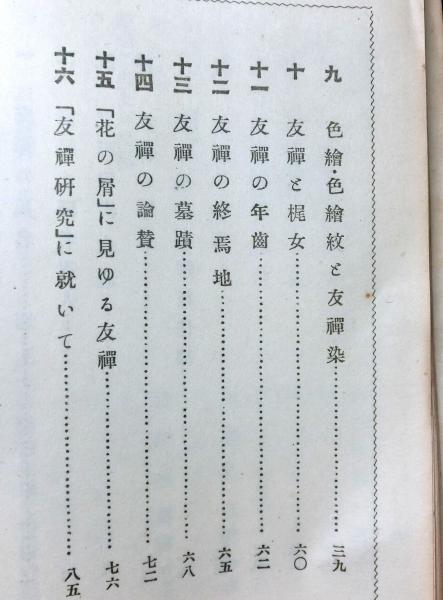 九 色繪・色繪紋と友禪染……三九
十 友禪と梶女……六〇
十一 友禪の年齒……六二
十二 友禪の終焉地……六五
十三 友禪の墓蹟……六八
十四 友禪の論賛……七二
十五 「花の屑」に見ゆる友禪……七六
十六 「友禪硏究」に就いて……八五